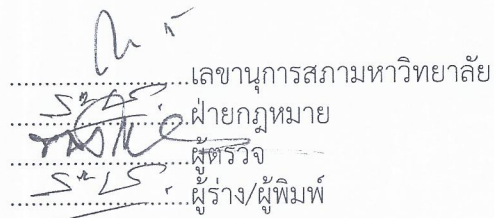 ....................เลขานุการสภามหาวิทยาลัย
....................ฝ่ายกฎหมาย
....................ผู้ตรวจ
....................ผู้ร่าง/ผู้พิมพ์